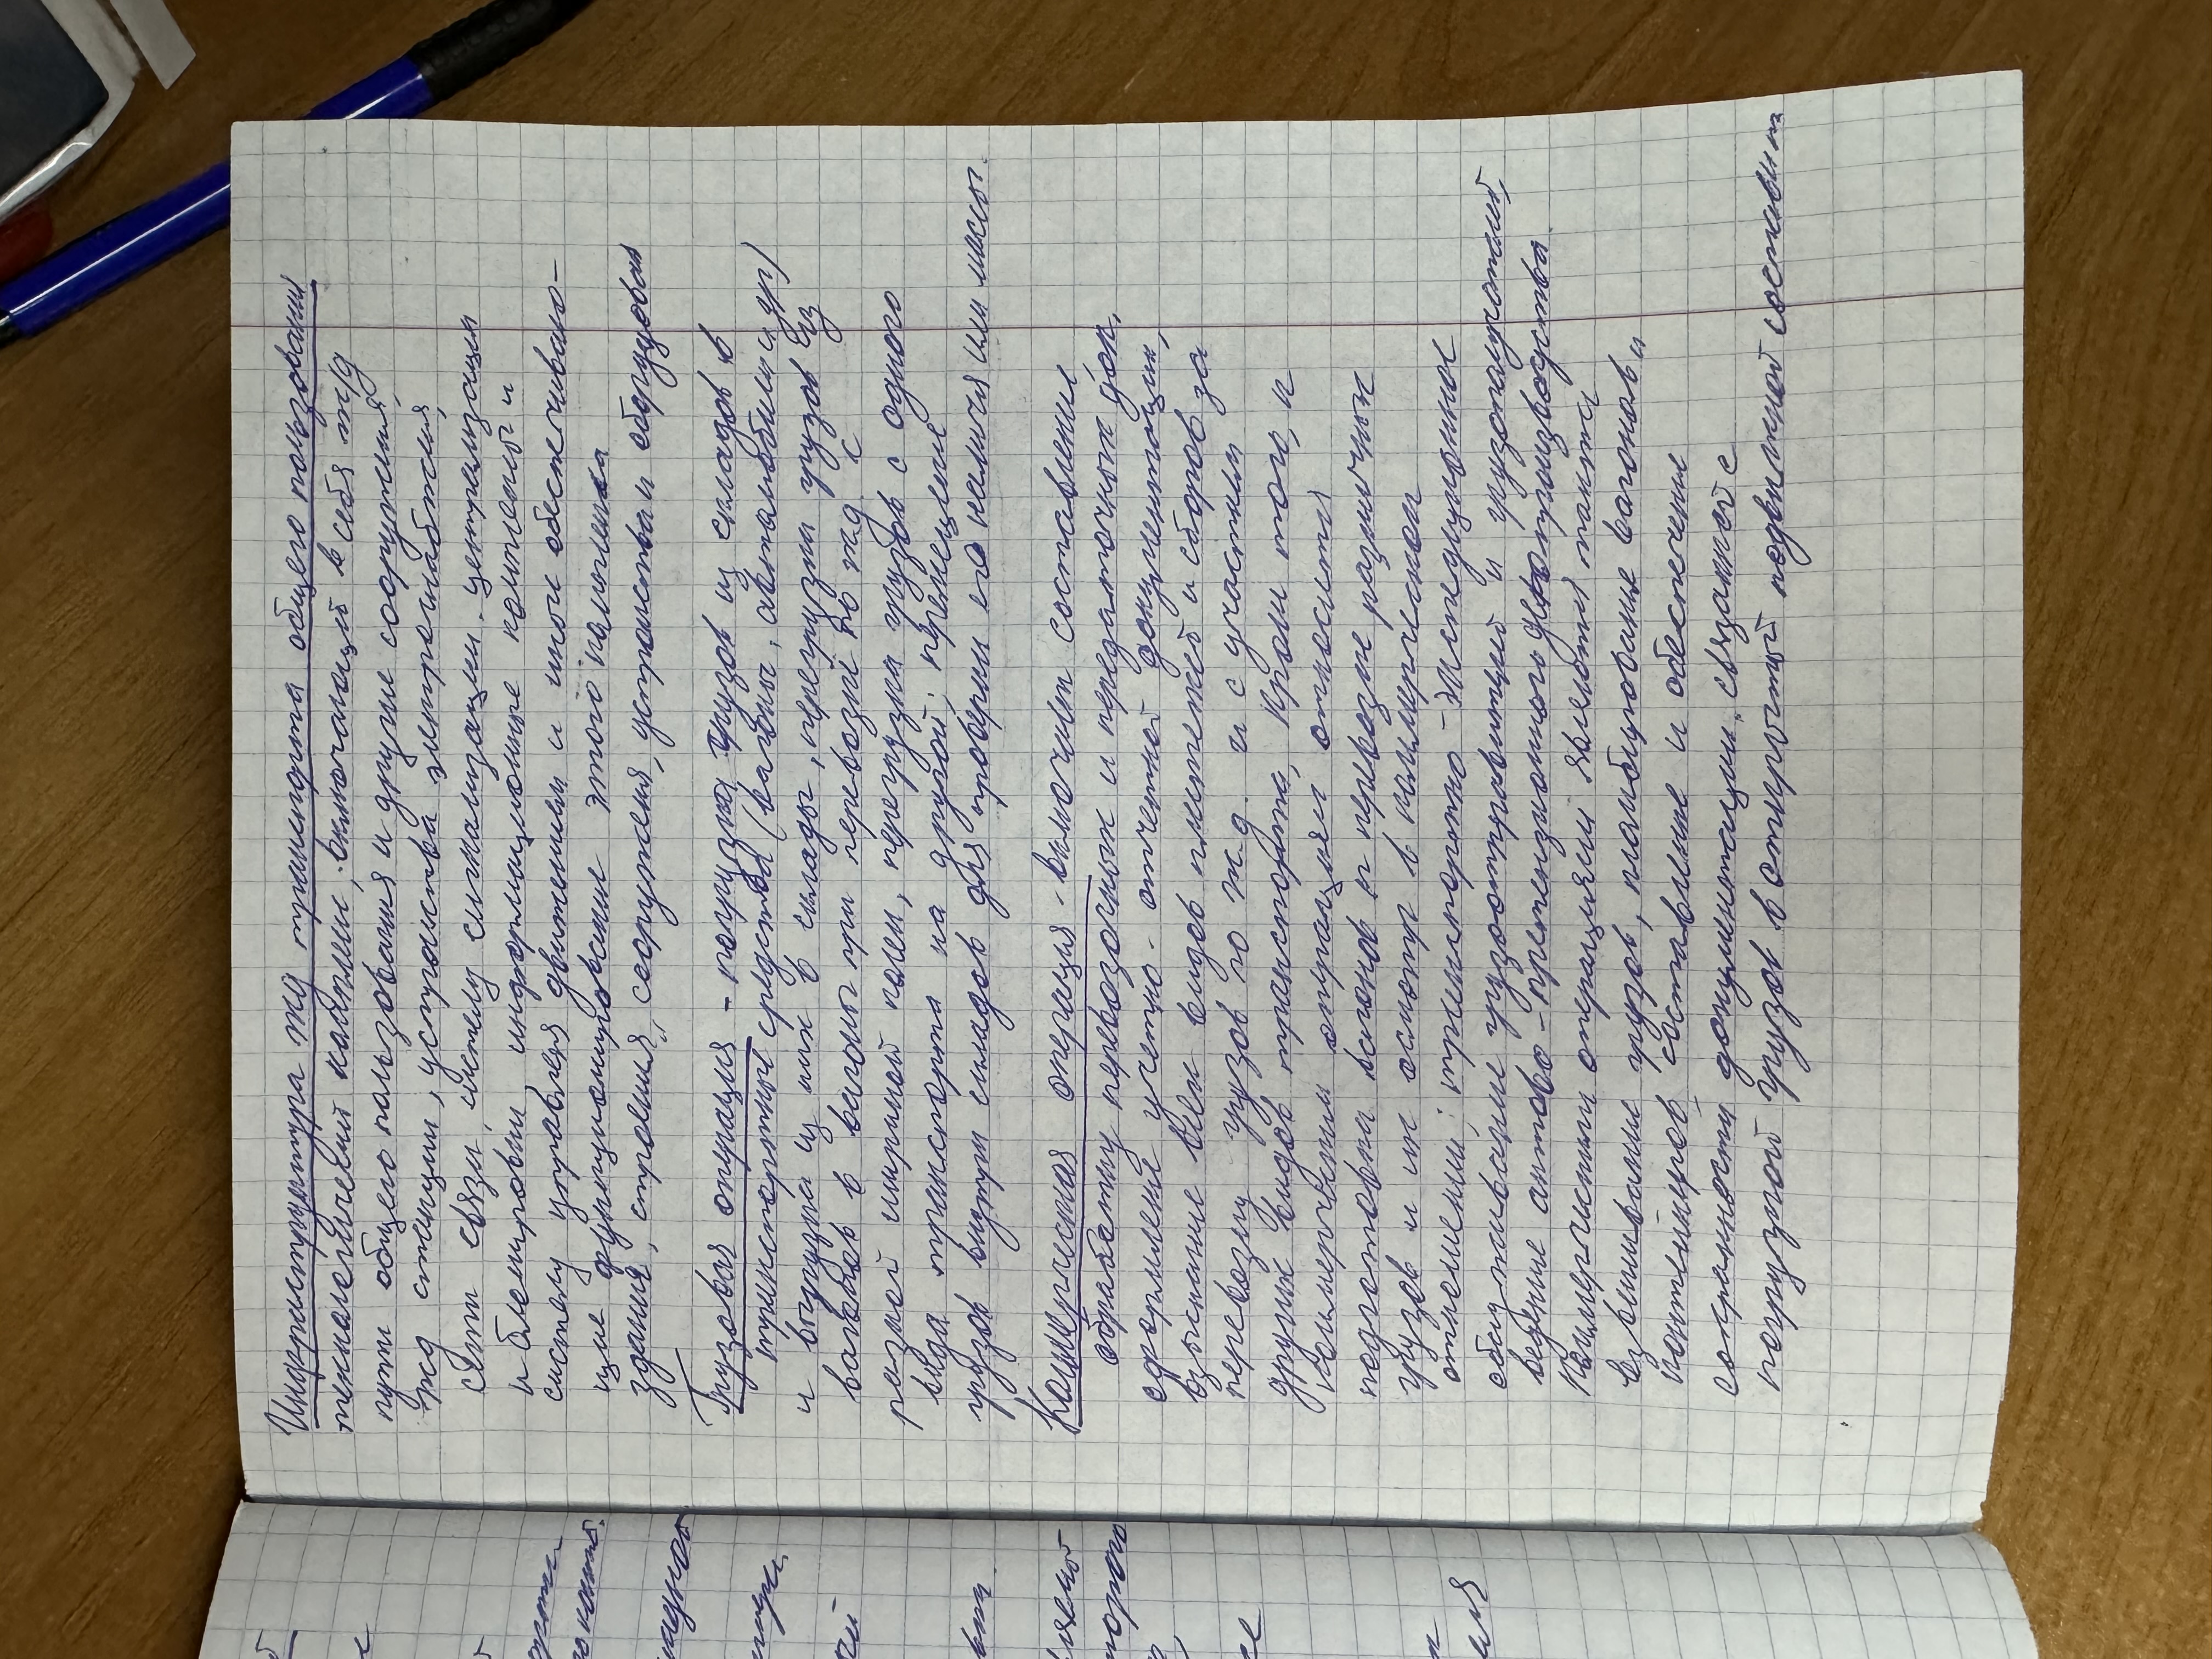 Инфраструктура жд транспорта общего пользования
технологический комплекс, включающий в себя ж/д
пути общего пользования и другие сооружения,
жд станции, устройства электроснабжения,
сети связи, систему сигнализации, централизации
и блокировки, информационные комплексы и
систему управления движением и иное обеспечиваю-
щие функционирование этого комплекса
здания, строения, сооружения, устройства и оборудован
Грузовая операция - погрузка грузов из складов в
транспортные средства (вагоны, автомобили и др)
и выгрузка из них в склады, перегрузки грузов из
вагонов в вагоны при перевозке по жд с
разной шириной колеи, перегрузки грузов с одного
вида транспорта на другой; перемещение
грузов внутри складов для проверки его наличия или массы.
Коммерческая операция - включает составление
обработку перевозочных и передаточных док.
оформлений учетно-отчетной документации,
взыскание всех видов платежей и сборов за
перевозку грузов по ж.д. и с участием
других видов транспорта, кроме того, к
коммерческим операциям относится
подготовки вагонов к перевозке различных
грузов и их осмотр в коммерческом
отношении; транспортно-экспедиционное
обслуживание грузоотправителей и грузополучателей,
ведение актово-претензионного делопроизводства
Коммерческими операциями являются также
взвешивание грузов, пломбирование вагонов и
контейнеров составление и обеспечение
сохранности документации, связанной с
погрузкой грузов в открытый подвижной состав